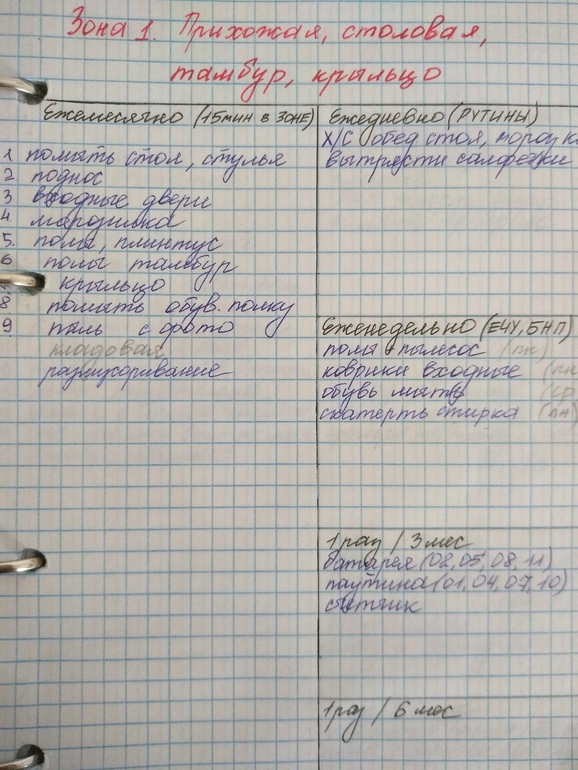 Зона 1. Прихожая, столовая,
тамбур, крыльцо
Ежемесячно (15мин в зоне)
1 помыть стол, стулья
2 поднос
3 входные двери
4 морозилка
5. полы, плинтус
6 полы тамбур
крыльцо
8 помыть обув. полку
9 пыль с фото
кладовая
размусоривание
Ежедневно (рутины)
Х/С обед стол,
вытрясти салфетки
Еженедельно (ЕЧУ, БНП)
полы + пылесос (пн)
коврики входные (пн
обувь мыть (ср
скатерть стирка (пн)
1 раз / 3 мес
батарея (02, 05, 08, 11)
паутина (01, 04, 07, 10)
1 раз / 6 мес